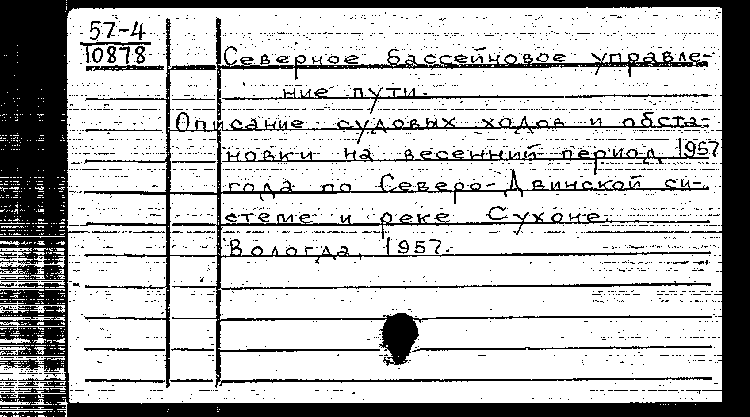 57-4
10878
Северное бассейновое управле-
ние пути.
Описание судовых ходов и обста-
новки на весенний период 1957
года по Северо-Двинской си-
стеме и реке Сухоне.
Вологда, 1957.